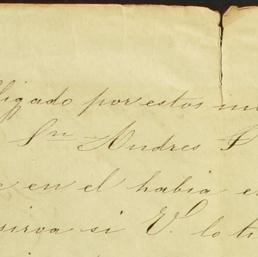 ligado por estos
Sn Andres
en el habia
sirva si V. lo